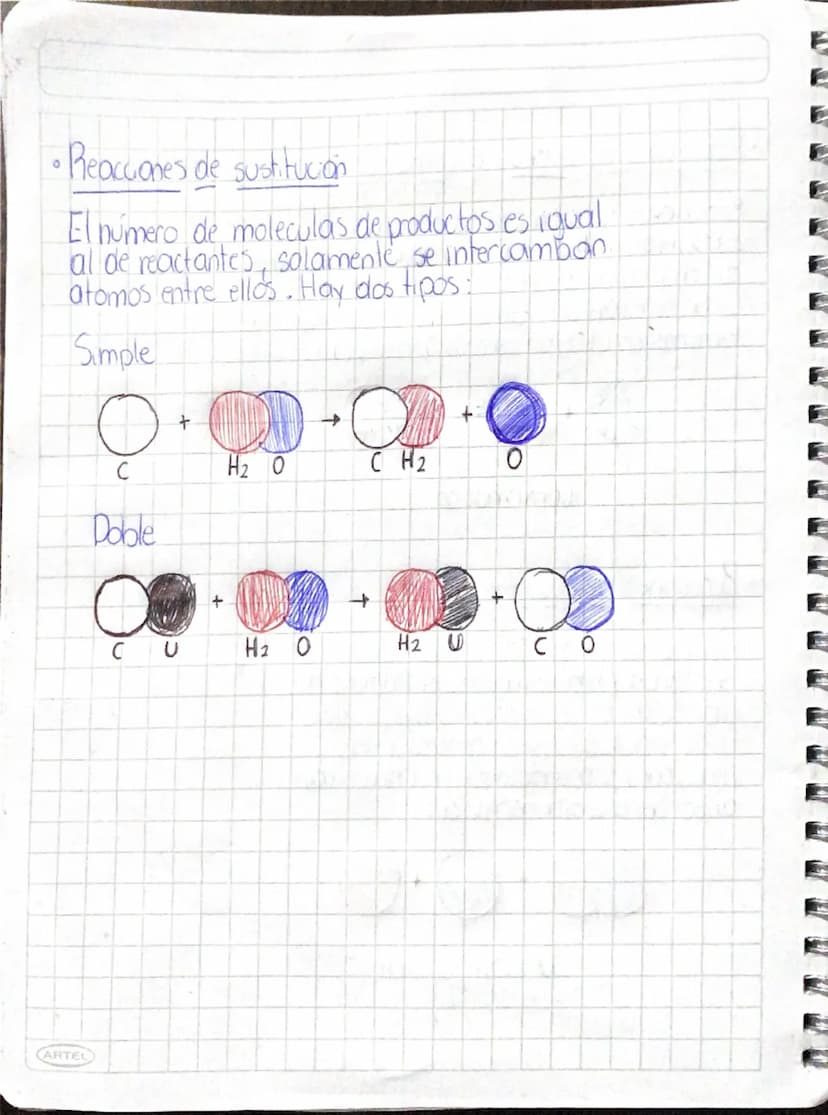 • Reacciones de sustitución
El número de moleculas de productos es igual
al de reactantes, solamente se intercambian
atomos entre ellos. Hay dos tipos:
Simple
+ → +
C H2 O C H2 O
Doble
+ → +
C U H2 O H2 U C O
ARTEL